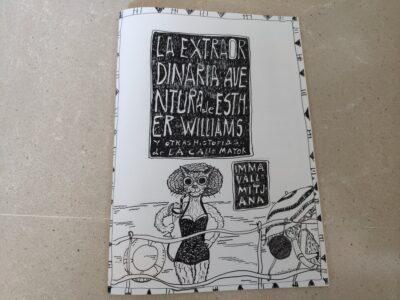 LA EXTRAOR
DINARIA AVE
NTURA de ESTH
ER WILLIAMS
Y OTRAS HISTORIAS
de LA CALLE MAYOR
IMMA
VALL-
MITJ
ANA